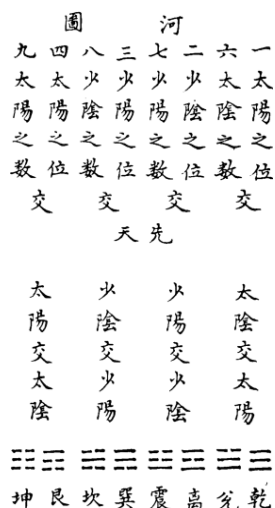 河圖
一太陽之位
六太陰之數
交
二少陰之位
七少陽之數
交
三少陽之位
八少陰之數
交
四太陽之位
九太陽之數
交
先天
太陰交太陽
少陽交少陰
少陰交少陽
太陽交太陰
☰☱☲☳☴☵☶☷
乾兌离震巽坎艮坤